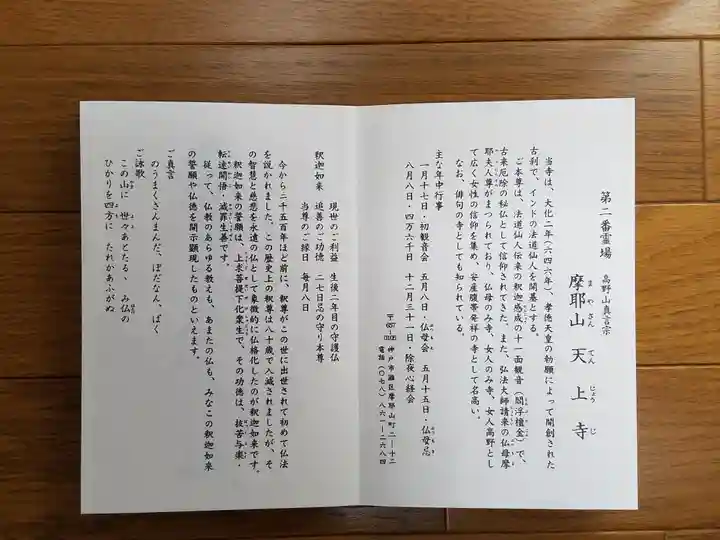 第二番霊場
高野山真言宗
摩耶山 天上寺
まやさん てんじょうじ
当寺は、大化二年（六四六年）、孝徳天皇の勅願によって開創された
古刹で、インドの法道仙人を開基とする。
ご本尊は、法道仙人伝来の釈迦感成の十一面観音（閻浮檀金）で、
古来厄除の秘仏として信仰されてきた。また、弘法大師請来の仏母摩
耶夫人尊がまつられており、仏母のみ寺、女人のみ寺、女人高野とし
て広く女性の信仰を集め、安産腹帯発祥の寺として名高い。
なお、俳句の寺としても知られている。
主な年中行事
一月十七日・初観音会 五月八日・仏母会 五月十五日・仏母忌
八月八日・四万六千日 十二月三十一日・除夜心経会
〒657-0105 神戸市灘区摩耶山町二―十二
電話（〇七八）八六一―二六八四
釈迦如来
現世のご利益 生後二年目の守護仏
追善のご功徳 二七日忌の守り本尊
当尊のご縁日 毎月八日
今から二千五百年ほど前に、釈尊がこの世に出世されて初めて仏法
を説かれました。この歴史上の釈尊は八十歳で入滅されましたが、そ
の智慧と慈悲を永遠の仏として象徴的に仏格化したのが釈迦如来です。
釈迦如来の誓願は、上求菩提下化衆生で、その功徳は、抜苦与楽・
転迷開悟・滅罪生善です。
従って、仏教のあらゆる教えも、あまたの仏も、みなこの釈迦如来
の誓願や仏徳を開示顕現したものといえます。
ご真言
のうまくさんまんだ、ぼだなん、ばく
ご詠歌
この山に 世々あとたるゝ み仏の
ひかりを四方に たれかあふがぬ